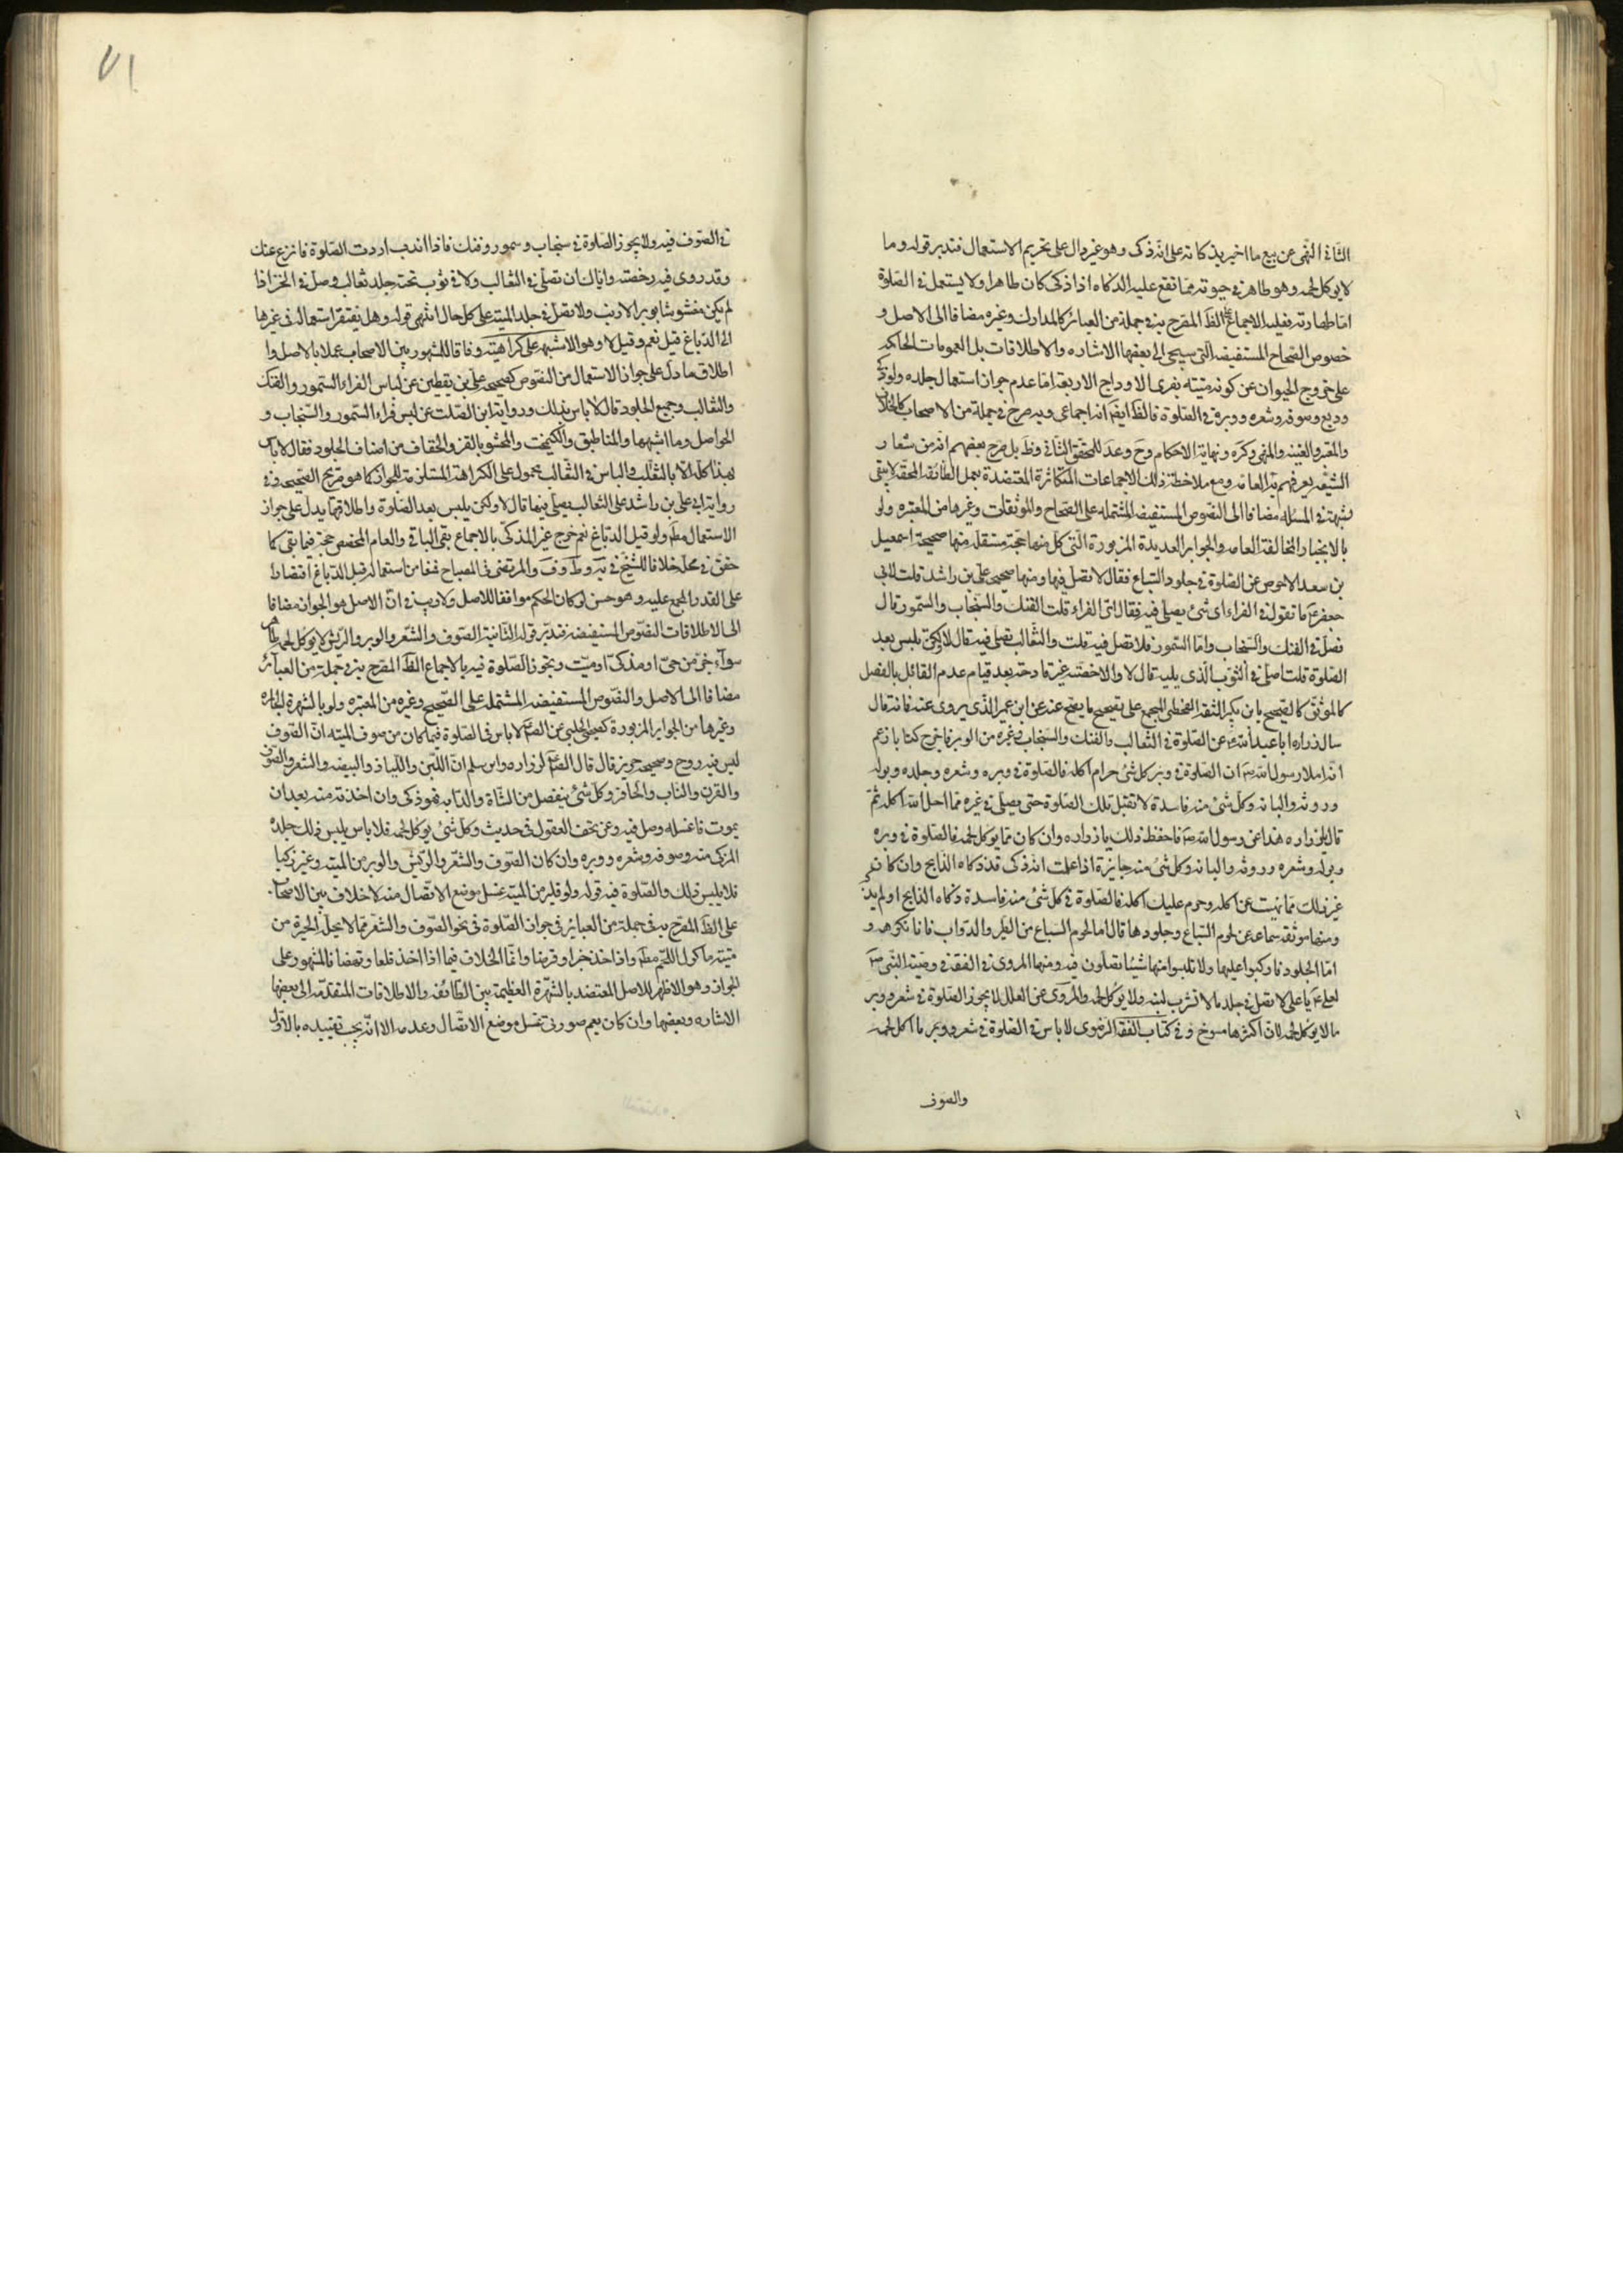 الثانى النهى عن بيع ما اخير بذكاته على انه ذكى وهو غير دال على تحريم الاستعمال فتدبر قوله وما
لا يوكل لحمه وهو طاهر فى حيوته مما تقع عليه الذكاه اذا ذكى كان طاهرا ولا يستعمل فى الصلوة
اما طهارته فعليه الاجماع الظ المصرح به فى جملة من العبائر كالمدارك وغيره مضافا الى الاصل و
خصوص الصحاح المستفيضه التى سيجى الى بعضها الاشاره والاطلاقات بل العمومات الحاكمه
على خروج الحيوان عن كونه ميتة بفرى الاوداج الاربعة اما عدم جواز استعمال جلده ولو
وصوفه وشعره ووبره فى الصلوة فالظ ايضا انه اجماعى وبه صرح فى جملة من الاصحاب كالخلاف
والمعتبر والغنيه والمنتهى وكره ونهاية الاحكام وعد للمحقق الثانى بل صرح بعضهم انه من شعار
الشيعة يعرفهم به العامة ومع ملاحظة ذلك الاجماعات المتكاثرة المعتضدة بعمل الطائفة المحقه لا يبقى
شبهة فى المسئله مضافا الى النصوص المستفيضه المشتمله على الصحاح والموثقات وغيرها من المعتبره ولو
بالانجبار والمخالفة العامه والجوابر العديدة المزبورة التى كل منها حجة مستقله منها صحيحة اسمعيل
بن سعد الاحوص عن الصلوة فى جلود السباع فقال لا تصل فيها ومنها صحيح على بن راشد قلت لابى
جعفر ما تقول فى الفراء اى شئ يصلى فيه فقال اى الفراء قلت الفنك والسنجاب والسمور قال
فصل فى الفنك والسنجاب واما السمور فلا تصل فيه قلت والثعالب تصلى فيه قال لا ولكن يلبس بعد
الصلوة قلت اصلى فى الثوب الذى يليه قال لا والاخصية غير قادحة بعد قيام عدم القائل بالفصل
كالموثق كالصحيح بابن بكير الثقه الفطحى المجمع على تصحيح ما يصح عنه عن ابن عمير الذى يروى عنه فانه قال
سال زراره ابا عبد الله عن الصلوة فى الثعالب والفنك والسنجاب وغيره من الوبر فاخرج كتابا زعم
انه املا رسول الله ص ان الصلوة فى وبر كل شئ حرام اكله فالصلوة فى وبره وشعره وجلده وبوله
وروثه والبانه وكل شئ منه فاسدة لا تقبل تلك الصلوة حتى يصلى فى غيره مما احل الله اكله ثم
قال يا زراره هذا عن رسول الله ص فاحفظ ذلك يا زراره وان كان مما يوكل لحمه فالصلوة فى وبره
وبوله وشعره وروثه والبانه وكل شئ منه جايزة اذا علمت انه ذكى قد ذكاه الذابح وان كان
غير ذلك مما نهيت عن اكله وحرم عليك اكله فالصلوة فى كل شئ منه فاسدة ذكاه الذابح او لم يذ
ومنها موثقه سماعه عن لحوم السباع وجلودها قال اما لحوم السباع من الطير والدواب فانا نكرهه و
اما الجلود فاركبوا عليها ولا تلبسوا منها شيئا تصلون فيه ومنها المروى فى الفقيه فى وصية النبى ص
لعلى ع يا على لا تصل فى جلد ما لا تشرب لبنه ولا يوكل لحمه والمروى عن العلل لا يجوز الصلوة فى شعر ووبر
ما لا يوكل لحمه لان اكثرها مسوخ وفى كتاب الفقه الرضوى لا باس فى الصلوة فى شعر ووبر ما اكل لحمه
والصوف
٧١
فى الصوف فيه ولا يجوز الصلوة فى سنجاب وسمور وفنك فاذا اردت الصلوة فانزع عنك
وقد روى فيه رخصته واياك ان تصلى فى الثعالب ولا فى ثوب تحته جلد ثعالب وصل فى الخز اذا
لم يكن مغشوشا بوبر الارنب ولا تصل فى جلد الميته على كل حال انتهى قوله وهل يفتقر استعماله فى غيرها
الى الدباغ قيل نعم وقيل لا وهو الاشبه على كراهيته وفاقا للمشهور بين الاصحاب عملا بالاصل وا
اطلاق ما دل على جواز الاستعمال من النصوص كصحيحة على بن يقطين عن لباس الفراء السمور والفنك
والثعالب وجميع الجلود قال لا باس بذلك ورواية ابن الصلت عن لبس فراء السمور والسنجاب و
الحواصل وما اشبهها والمناطيق والكيمخت والمحشو بالقز والخفاف من اصناف الجلود فقال لا باس
بهذا كله الا بالثعالب والباس فى الثعالب محمول على الكراهة المستلزمة للجواز كما هو صريح الصحيحه وفى
رواية ابى على بن راشد على الثعالب يصلى فيها قال لا ولكن يلبس بعد الصلوة واطلاقها يدل على جواز
الاستعمال مط ولو قبل الدباغ نعم خرج غير المذكى بالاجماع بقى الباقى والعام المخصص حجة فيما بقى كما
حقق فى محله خلافا للشيخ فى والمرتضى فى المصباح فمنعا من استعماله قبل الدباغ اقتصارا
على القدر المجمع عليه وهو حسن لو كان الحكم موافقا للاصل ولا ريب فى ان الاصل هو الجواز مضافا
الى الاطلاقات النصوص المستفيضه فتدبر قوله الثانية الصوف والشعر والوبر والريش مما يوكل لحمه طاهر
سواء جز من حى او مذكى او ميت ويجوز الصلوة فيه بالاجماع الظ المصرح به فى جملة من العبائر
مضافا الى الاصل والنصوص المستفيضه المشتمله على الصحيح وغيره من المعتبره ولو بالشهرة الجابره
وغيرها من الجوابر المزبورة كصحيح الحلبى عن الص لا باس فى الصلوة فيما كان من صوف الميته ان الصوف
ليس فيه روح وصحيحه حريز قال قال الص لزراره وابن مسلم ان اللبن واللباء والبيضه والشعر والصوف
والقرن والناب والحافر وكل شئ ينفصل من الشاة والدابه فهو ذكى وان اخذته منه بعد ان
يموت فاغسله وصل فيه وعن تحف العقول فى حديث وكل شئ يوكل لحمه فلا باس بلبس جلده
المزكى منه وصوفه وشعره ووبره وان كان الصوف والشعر والريش والوبر من الميته وغير زكيا
فلا يلبس ذلك والصلوة فيه قوله ولو قلع من الميته غسل موضع الاتصال منه لا خلاف بين الاصحاب
على الظ المصرح به فى جملة من العبائر فى جواز الصلوة فى نحو الصوف والشعر مما لا يحله الحيوة من
ميتة ماكول اللحم مط واذا اخذ جزا وقرضا وانما الخلاف فيما اذا اخذ قلعا ونتفا فالمشهور على
الجواز وهو الاظهر للاصل المعتضد بالشهرة العظيمة بين الطائفه والاطلاقات المتقدمه الى بعضها
الاشاره وبعضها وان كان يعم صورتى غسل موضع الاتصال وعدمه الا انه يجب تقييده بالاول